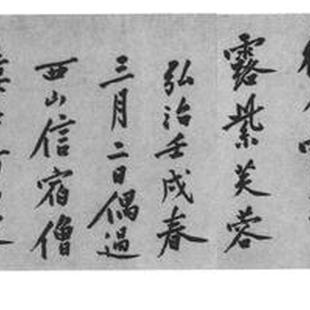 露紫芙蓉
弘治壬戌春
三月二日偶過
西山信宿僧